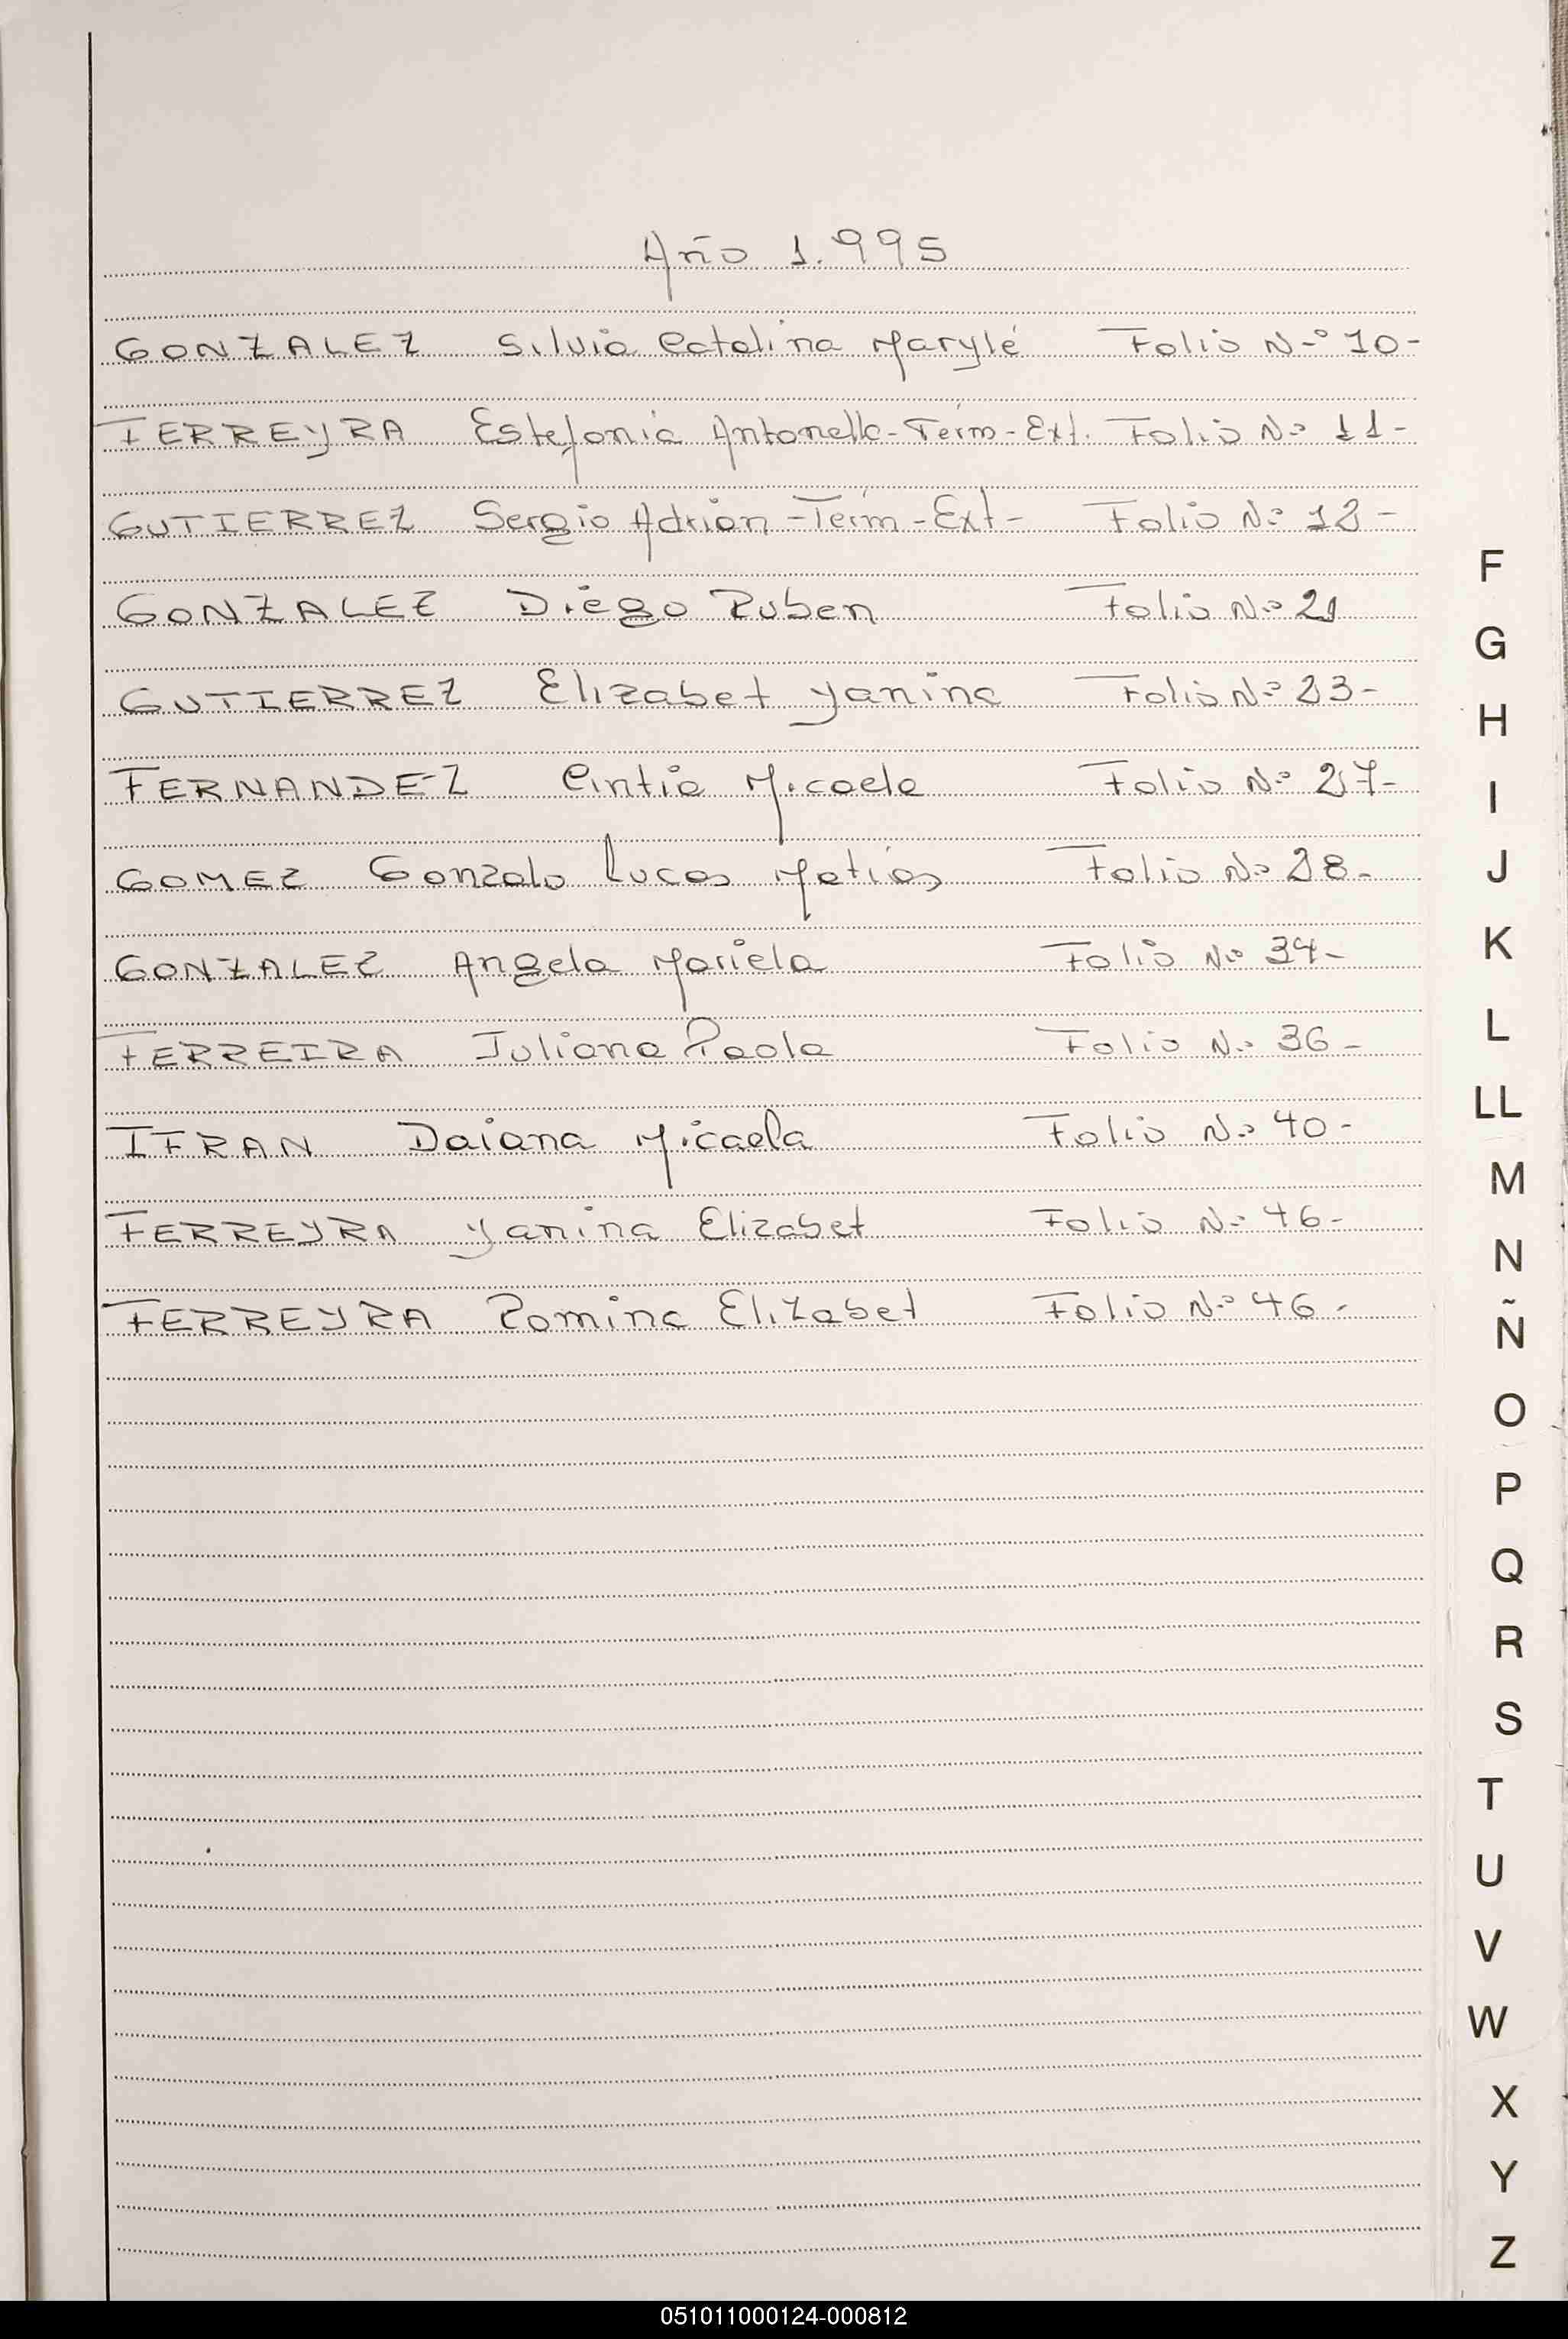 Año 1.995
GONZALEZ Silvia Catalina Marylé Folio N-º 10-
FERREYRA Estefonia Antonella-Térm-Ext. Folio Nº 11-
GUTIERREZ Sergio Adrian-Térm-Ext- Folio Nº 12-
GONZALEZ Diego Ruben Folio Nº 21
GUTIERREZ Elizabet Yanina Folio Nº 23-
FERNANDEZ Cintia Micaela Folio Nº 27-
GOMEZ Gonzalo Lucas Matias Folio Nº 28-
GONZALEZ Angela Mariela Folio Nº 34-
FERREIRA Juliana Paola Folio Nº 36-
IFRAN Daiana Micaela Folio Nº 40-
FERREYRA Yanina Elizabet Folio Nº 46-
FERREYRA Romina Elizabet Folio Nº 46-
F
G
H
I
J
K
L
LL
M
N
Ñ
O
P
Q
R
S
T
U
V
W
X
Y
Z
051011000124-000812